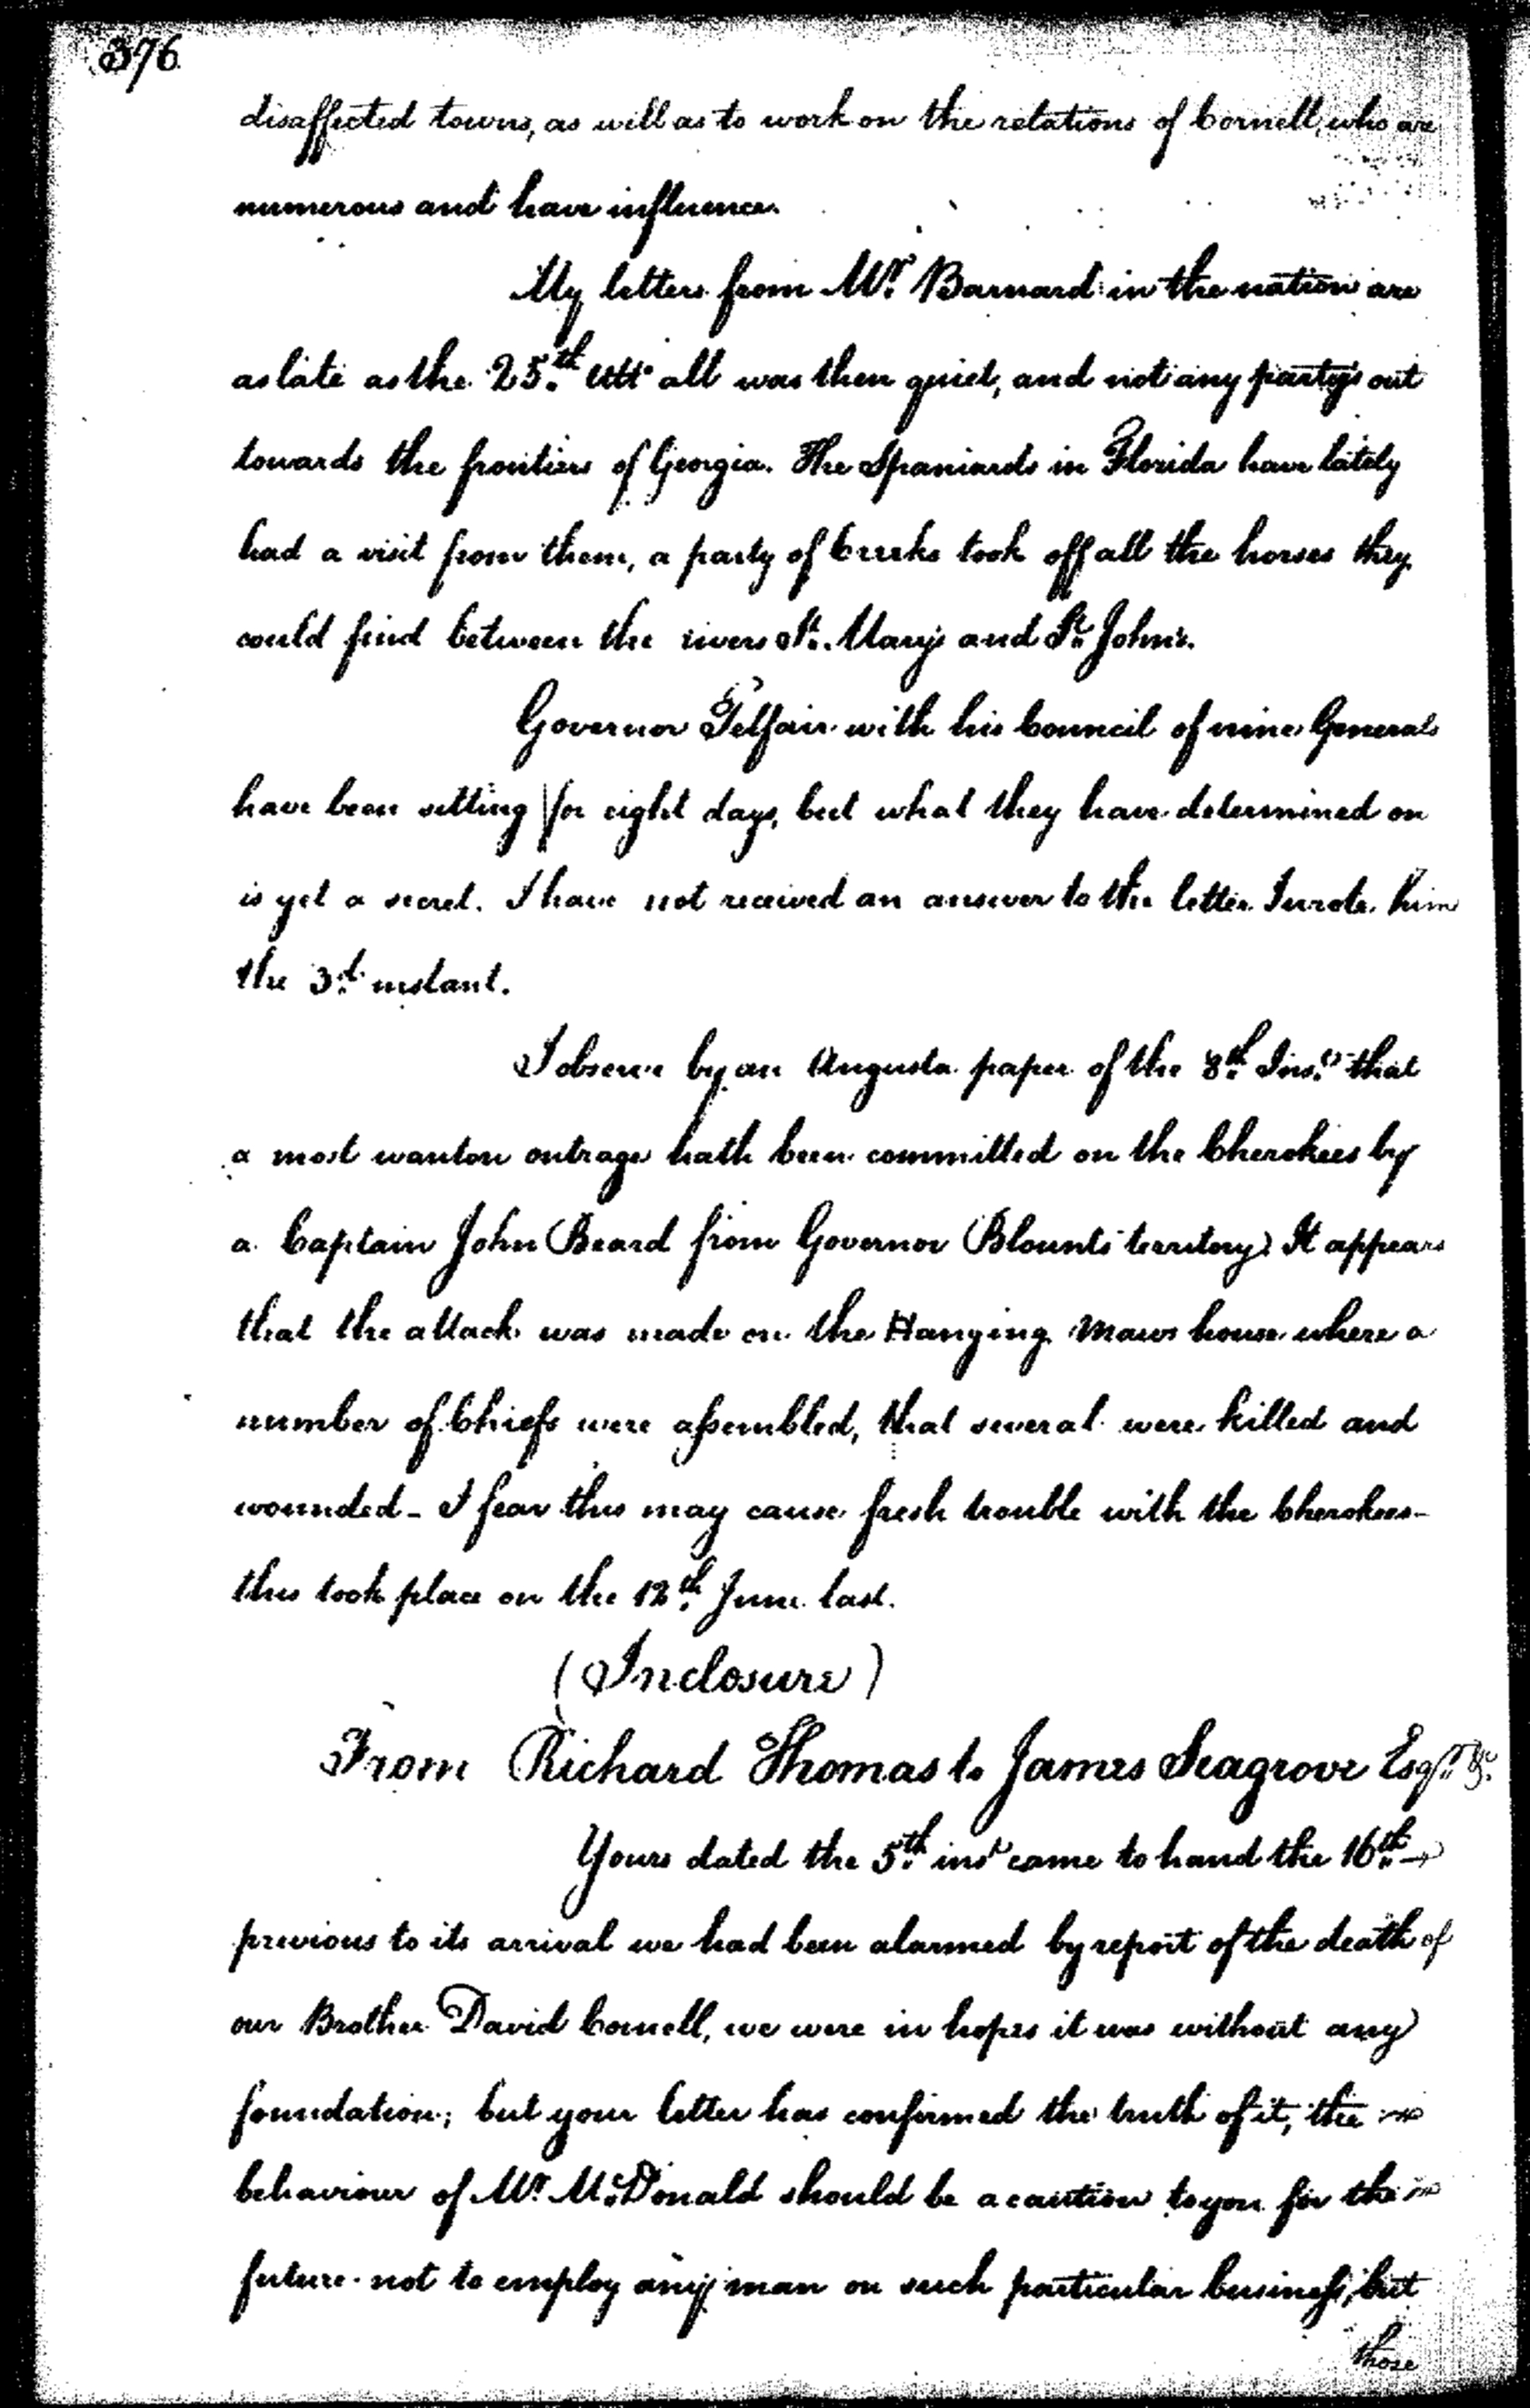 376
disaffected towns, as well as to work on the relations of Cornell, who are
numerous and have influence.
My letters from Mr. Barnard in the nation are
as late as the 25th. Ulto. all was then quiet, and not any partys out
towards the frontiers of Georgia. The Spaniards in Florida have lately
had a visit from them, a party of Creeks took off all the horses they
could find between the rivers St. Marys and St. John's.
Governor Telfair with his Council of nine Generals
have been sitting for eight days, but what they have determined on
is yet a secret. I have not received an answer to the letter I wrote him
the 3d. instant.
I observe by an Augusta paper of the 8th. Inst. that
a most wanton outrage hath been committed on the Cherokees by
a Captain John Beard from Governor Blounts territory. It appears
that the attack was made on the Hanging Maws house where a
number of Chiefs were assembled, that several were killed and
wounded - I fear this may cause fresh trouble with the Cherokees -
this took place on the 12th. June last.
(Inclosure)
From Richard Thomas to James Seagrove Esqr. &c.
Yours dated the 5th. inst. came to hand the 16th. -
previous to its arrival we had been alarmed by report of the death of
our Brother David Cornell, we were in hopes it was without any
foundation; but your letter has confirmed the truth of it, the
behaviour of Mr. McDonald should be a caution to you for the
future not to employ any man on such particular business, but
those